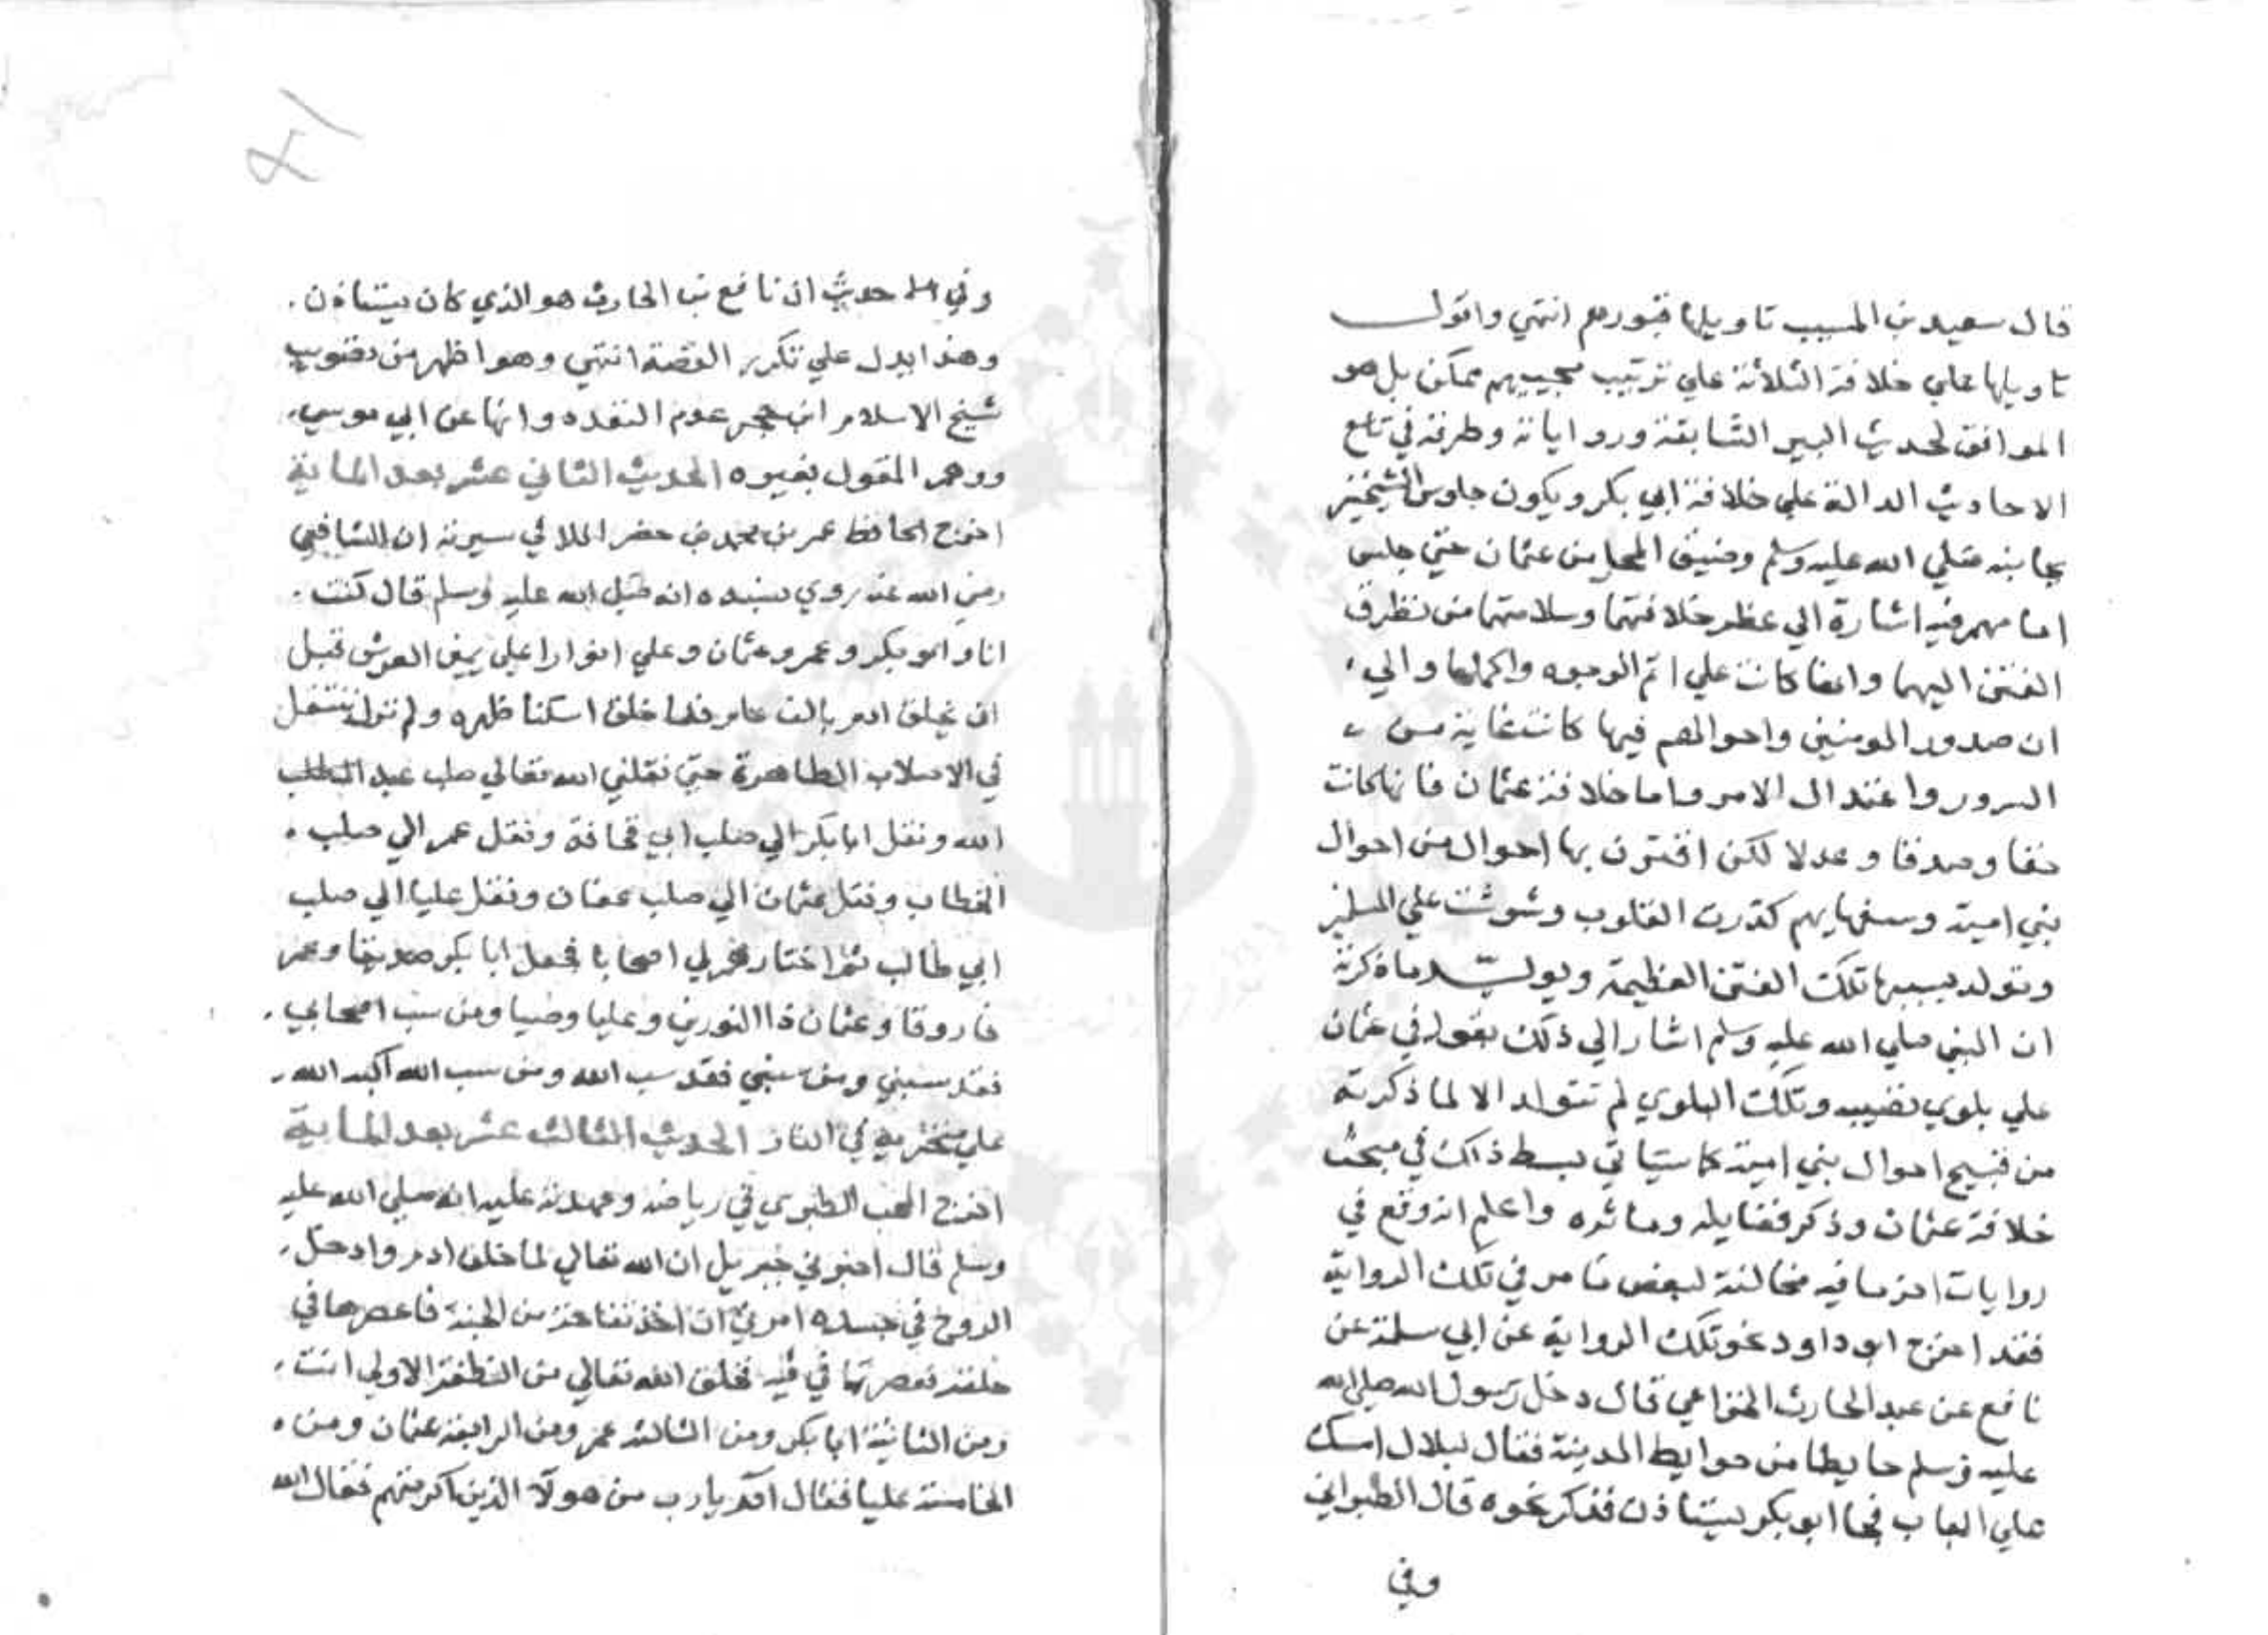 قال سعيد بن المسيب تاويلها قبورهم انتهي واقول
تاويلها علي خلافة الثلاثة علي ترتيب مجييهم ممكن بل هو
الموافق لحديث البير السابقة ورواياته وطرقه في تاسع
الاحاديث الدالة علي خلافة ابي بكر ويكون جلوس الشيخين
بجانبه صلي الله عليه وسلم وضيق المحل من عثمان حتي جلس
امامهم فيه اشارة الي عظم خلافتهما وسلامتهما من تطرق
الفتن اليهما وانها كانت علي اتم الوجوه واكملها والي
ان صدور المومنين واحوالهم فيها كانت غاية من
السرور واعتدال الامر واما خلافة عثمان فانها كانت
حقا وصدقا وعدلا لكن اقترن بها احوال من احوال
بني امية وسفهايهم كدرت القلوب وشوشت علي المسلمين
وتولد بسببها تلك الفتن العظيمة ويويد ما ذكرته
ان النبي صلي الله عليه وسلم اشار الي ذلك بقوله في عثمان
علي بلوي تصيبه وتلك البلوي لم تتولد الا لما ذكرته
من قبيح احوال بني امية كما سياتي بسط ذلك في مبحث
خلافة عثمان وذكر فضايله ومائره واعلم انه وقع في
روايات اخر ما فيه مخالفة لبعض ما مر في تلك الرواية
فقد اخرج ابو داود نحو تلك الرواية عن ابي سلمة عن
نافع عن عبد الحارث الخزاعي قال دخل رسول الله صلي الله
عليه وسلم حايطا من حوايط المدينة فقال لبلال امسك
علي الباب فجا ابو بكر يستاذن فذكر نحوه قال الطبراني
وفي
وفي حديث ان نافع بن الحارث هو الذي كان يستاذن
وهذا يدل علي تكرر القصة انتهي وهو اظهر من تصويب
شيخ الاسلام ابن حجر عدم التعدد وانها عن ابي موسي
ووهم القول بغيره الحديث الثاني عشر بعد الماية
اخرج الحافظ عمر بن محمد بن خضر الملا في سيرته ان الشافعي
رضي الله عنه روي بسنده انه صلي الله عليه وسلم قال كنت
انا وابو بكر وعمر وعثمان وعلي انوارا علي يمين العرش قبل
ان يخلق ادم بالف عام فلما خلق اسكنا ظهره ولم نزل ننتقل
في الاصلاب الطاهرة حتي نقلني الله تعالي صلب عبد
الله ونقل ابا بكر الي صلب ابي قحافة ونقل عمر الي صلب
الخطاب ونقل عثمان الي صلب عفان ونقل عليا الي صلب
ابي طالب ثم اختارهم لي اصحابا فجعل ابا بكر صديقا وعمر
فاروقا وعثمان ذا النورين وعليا وصيا ومن سب اصحابي
فقد سبني ومن سبني فقد سب الله ومن سب الله اكبه الله
علي منخريه في النار الحديث الثالث عشر بعد الماية
اخرج المحب الطبري في رياضه وعهدته عليه انه صلي الله عليه
وسلم قال اخبرني جبريل ان الله تعالي لما خلق ادم وادخل
الروح في جسده امرني ان اخذ تفاحة من الجنة فاعصرها في
حلقه فعصرتها في فيه فخلق الله تعالي من النطفة الاولي انت
ومن الثانية ابا بكر ومن الثالثة عمر ومن الرابعة عثمان ومن
الخامسة عليا فقال ادم يارب من هولآ الذين اكرمتهم فقال الله